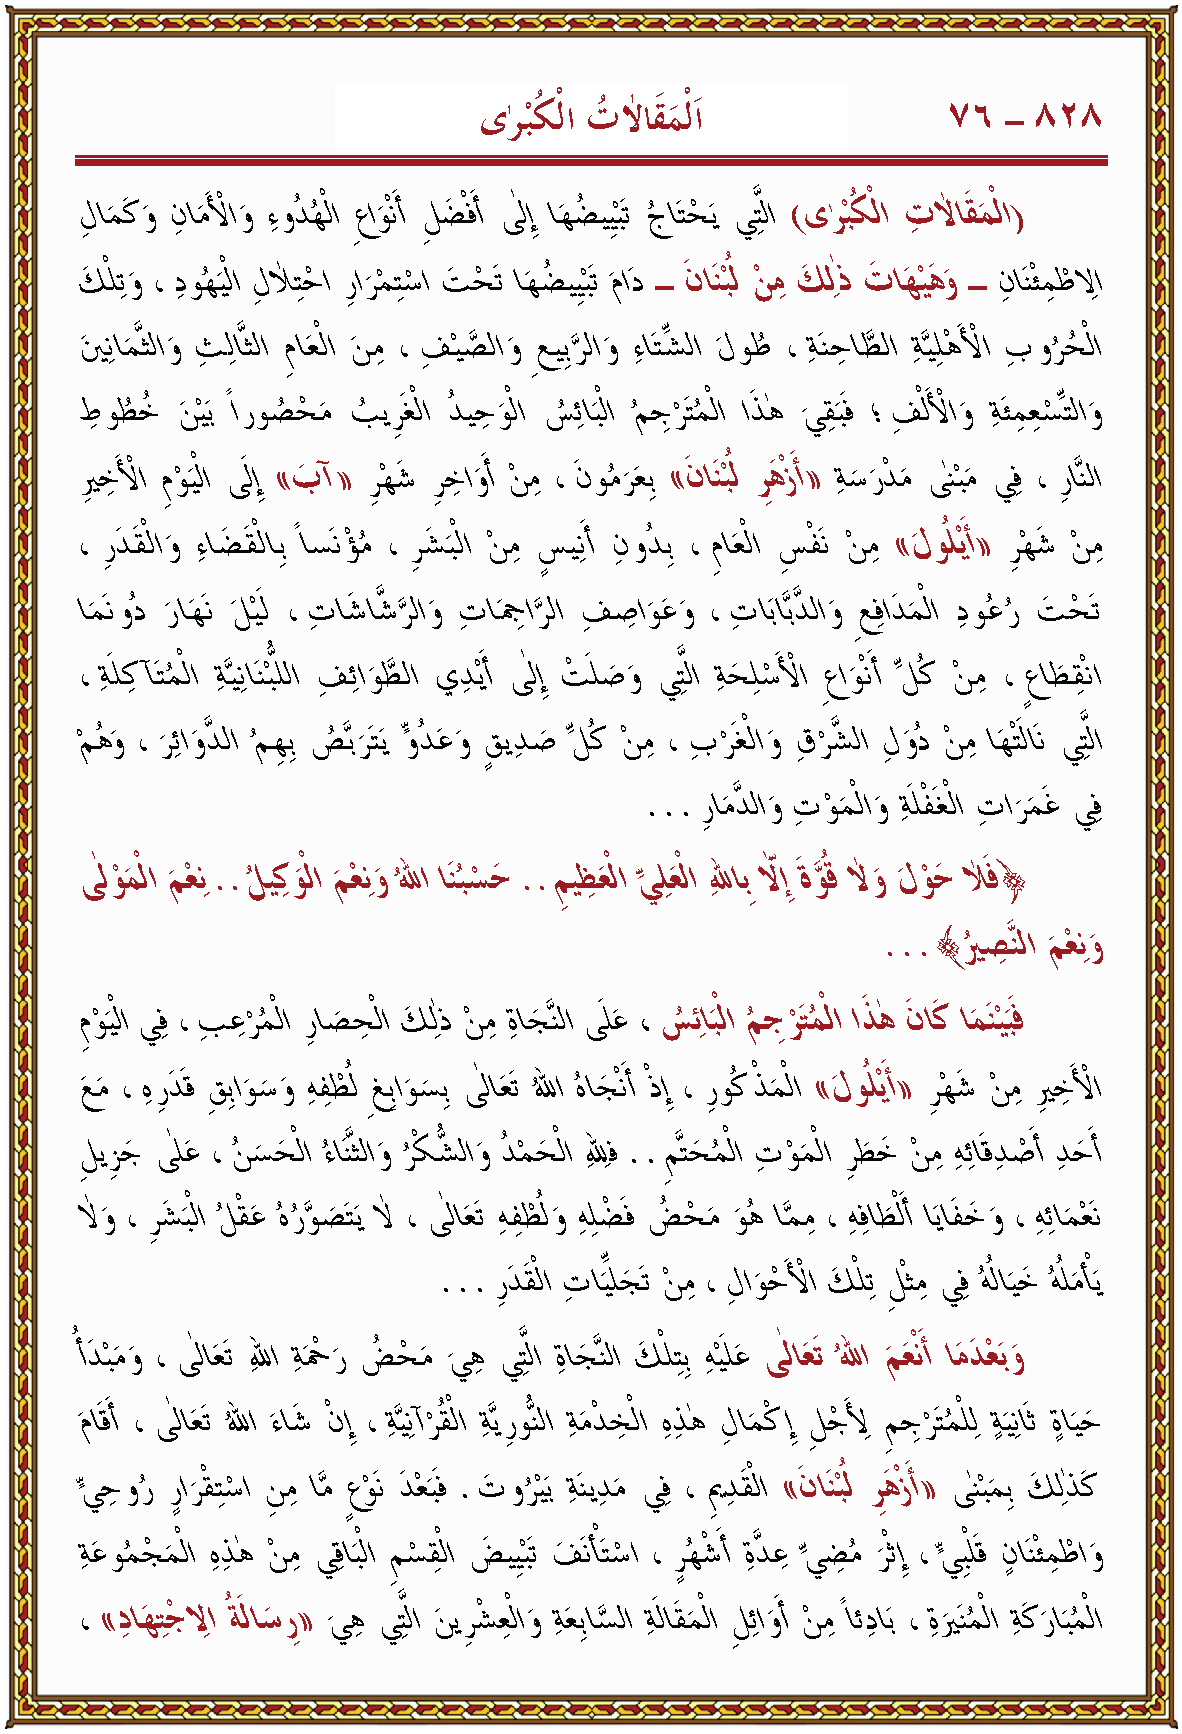 ٨٢٨ ــ ٧٦ اَلْمَقَالاٰتُ الْكُبْرٰى
(الْمَقَالاٰتِ الْكُبْرٰى) الَّتِي يَحْتَاجُ تَبْيِيضُهَا إِلٰى أَفْضَلِ أَنْوَاعِ الْهُدُوءِ وَالْأَمَانِ وَكَمَالِ
الِاطْمِئْنَانِ ــ وَهَيْهَاتَ ذٰلِكَ مِنْ لُبْنَانَ ــ دَامَ تَبْيِيضُهَا تَحْتَ اسْتِمْرَارِ احْتِلَالِ الْيَهُودِ ، وَتِلْكَ
الْحُرُوبِ الْأَهْلِيَّةِ الطَّاحِنَةِ ، طُولَ الشِّتَاءِ وَالرَّبِيعِ وَالصَّيْفِ ، مِنَ الْعَامِ الثَّالِثِ وَالثَّمَانِينَ
وَالتِّسْعِمِئَةِ وَالْأَلْفِ ؛ فَبَقِيَ هٰذَا الْمُتَرْجِمُ الْبَائِسُ الْوَحِيدُ الْغَرِيبُ مَحْصُوراً بَيْنَ خُطُوطِ
النَّارِ ، فِي مَبْنٰى مَدْرَسَةِ «أَزْهَرِ لُبْنَانَ» بِعَرَمُونَ ، مِنْ أَوَاخِرِ شَهْرِ «آبَ» إِلَى الْيَوْمِ الْأَخِيرِ
مِنْ شَهْرِ «أَيْلُولَ» مِنْ نَفْسِ الْعَامِ ، بِدُونِ أَنِيسٍ مِنْ الْبَشَرِ ، مُؤْنَساً بِالْقَضَاءِ وَالْقَدَرِ ،
تَحْتَ رُعُودِ الْمَدَافِعِ وَالدَّبَّابَاتِ ، وَعَوَاصِفِ الرَّاجِمَاتِ وَالرَّشَّاشَاتِ ، لَيْلَ نَهَارَ دُونَمَا
انْقِطَاعٍ ، مِنْ كُلِّ أَنْوَاعِ الْأَسْلِحَةِ الَّتِي وَصَلَتْ إِلٰى أَيْدِي الطَّوَائِفِ اللُّبْنَانِيَّةِ الْمُتَآكِلَةِ ،
الَّتِي نَالَتْهَا مِنْ دُوَلِ الشَّرْقِ وَالْغَرْبِ ، مِنْ كُلِّ صَدِيقٍ وَعَدُوٍّ يَتَرَبَّصُ بِهِمُ الدَّوَائِرَ ، وَهُمْ
فِي غَمَرَاتِ الْغَفْلَةِ وَالْمَوْتِ وَالدَّمَارِ . . .
﴿فَلاٰ حَوْلَ وَلاٰ قُوَّةَ إِلاّٰ بِاللهِ الْعَلِيِّ الْعَظِيمِ . . حَسْبُنَا اللهُ وَنِعْمَ الْوَكِيلُ . . نِعْمَ الْمَوْلٰى
وَنِعْمَ النَّصِيرُ﴾ . . .
فَبَيْنَمَا كَانَ هٰذَا الْمُتَرْجِمُ الْبَائِسُ ، عَلَى النَّجَاةِ مِنْ ذٰلِكَ الْحِصَارِ الْمُرْعِبِ ، فِي الْيَوْمِ
الْأَخِيرِ مِنْ شَهْرِ «أَيْلُولَ» الْمَذْكُورِ ، إِذْ أَنْجَاهُ اللهُ تَعَالٰى بِسَوَابِغِ لُطْفِهِ وَسَوَابِقِ قَدَرِهِ ، مَعَ
أَحَدِ أَصْدِقَائِهِ مِنْ خَطَرِ الْمَوْتِ الْمُحَتَّمِ . . فَلِلّٰهِ الْحَمْدُ وَالشُّكْرُ وَالثَّنَاءُ الْحَسَنُ ، عَلٰى جَزِيلِ
نَعْمَائِهِ ، وَخَفَايَا أَلْطَافِهِ ، مِمَّا هُوَ مَحْضُ فَضْلِهِ وَلُطْفِهِ تَعَالٰى ، لاٰ يَتَصَوَّرُهُ عَقْلُ الْبَشَرِ ، وَلاٰ
يَأْمَلُهُ خَيَالُهُ فِي مِثْلِ تِلْكَ الْأَحْوَالِ ، مِنْ تَجَلِّيَاتِ الْقَدَرِ . . .
وَبَعْدَمَا أَنْعَمَ اللهُ تَعَالٰى عَلَيْهِ بِتِلْكَ النَّجَاةِ الَّتِي هِيَ مَحْضُ رَحْمَةِ اللهِ تَعَالٰى ، وَمَبْدَأُ
حَيَاةٍ ثَانِيَةٍ لِلْمُتَرْجِمِ لِأَجْلِ إِكْمَالِ هٰذِهِ الْخِدْمَةِ النُّورِيَّةِ الْقُرْآنِيَّةِ ، إِنْ شَاءَ اللهُ تَعَالٰى ، أَقَامَ
كَذٰلِكَ بِمَبْنٰى «أَزْهَرِ لُبْنَانَ» الْقَدِيمِ ، فِي مَدِينَةِ بَيْرُوتَ . فَبَعْدَ نَوْعٍ مَّا مِنِ اسْتِقْرَارٍ رُوحِيٍّ
وَاطْمِئْنَانٍ قَلْبِيٍّ ، إِثْرَ مُضِيِّ عِدَّةِ أَشْهُرٍ ، اسْتَأْنَفَ تَبْيِيضَ الْقِسْمِ الْبَاقِي مِنْ هٰذِهِ الْمَجْمُوعَةِ
الْمُبَارَكَةِ الْمُنَيرَةِ ، بَادِئاً مِنْ أَوَائِلِ الْمَقَالَةِ السَّابِعَةِ وَالْعِشْرِينَ الَّتِي هِيَ «رِسَالَةُ الِاجْتِهَادِ» ،